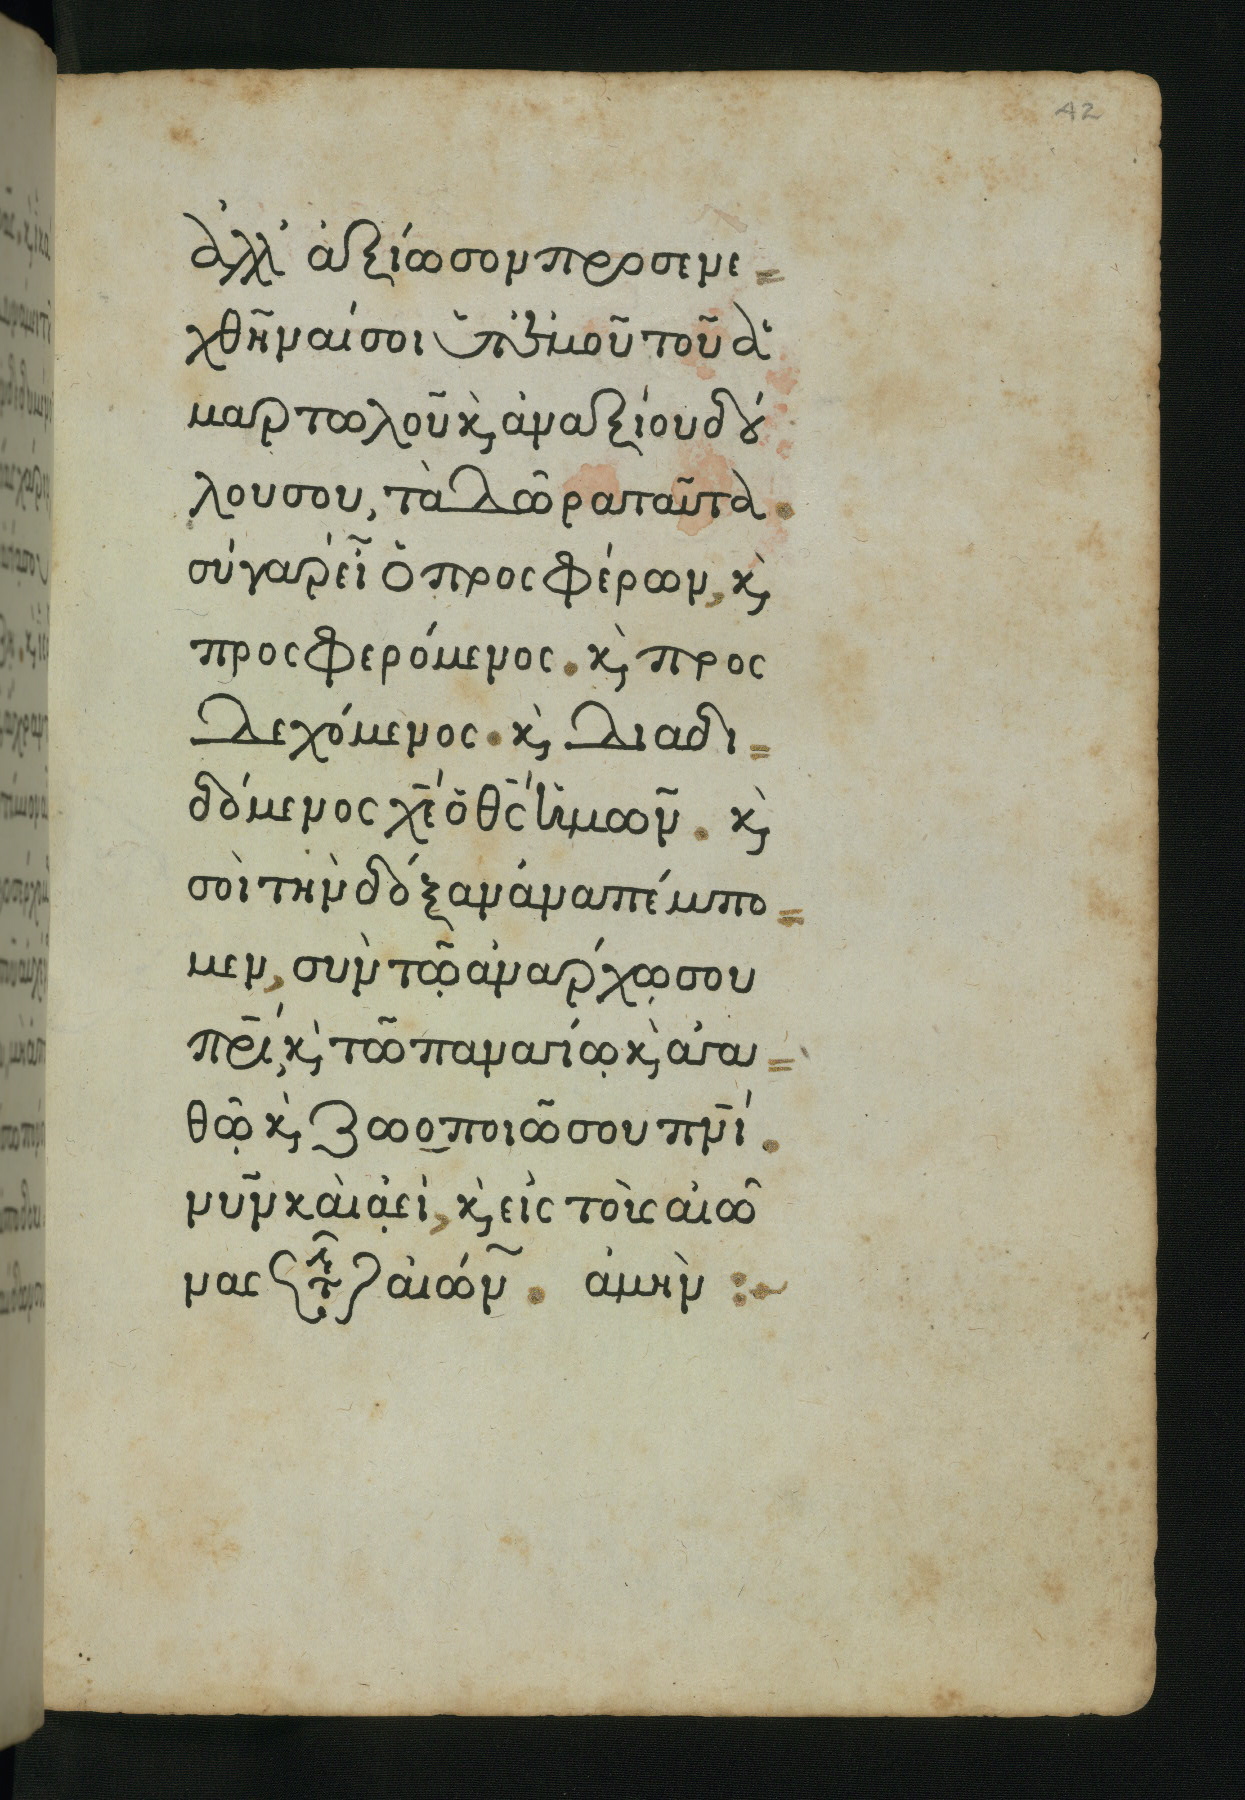 42
ἀλλ' ἀξίωσον προσενε=
χθῆναί σοι ὑπ' ἐμοῦ τοῦ ἁ
μαρτωλοῦ κ(αὶ) ἀναξίου δού
λου σου, τὰ δῶρα ταῦτα.
σύ γαρ εἶ ὁ προσφέρων, κ(αὶ)
προσφερόμενος. κ(αὶ) προσ
δεχόμενος. κ(αὶ) διαδι=
δόμενος χ̅έ̅ ὁ θ̅ς̅ ἡμῶν. κ(αὶ)
σοὶ τὴν δόξαν ἀναπέμπο=
μεν, σὺν τῷ ἀνάρχῳ σου
π̅ρ̅ί̅, κ(αὶ) τῷ παναγίῳ κ(αὶ) ἀγα=
θῷ κ(αὶ) ζωοποιῷ σου π̅ν̅ί̅.
νῦν καὶ ἀεὶ, κ(αὶ) εἰς τοὺς αἰῶ
νας τῶν αἰών. ἀμὴν :~